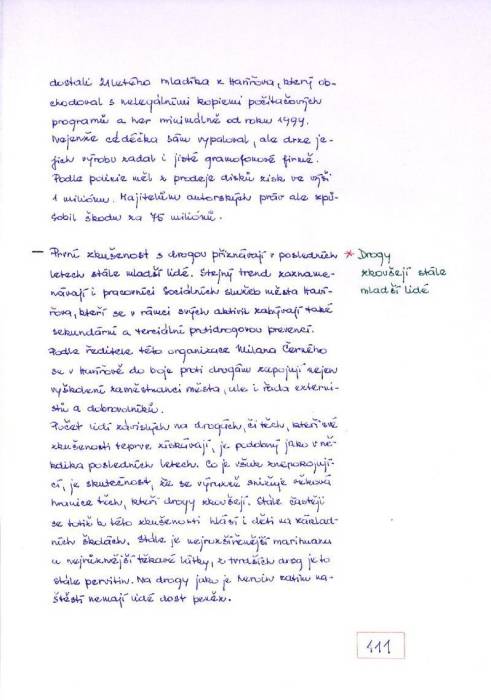 dostali 21letého mladíka z Havířova, který ob-
chodoval s nelegálními kopiemi počítačových
programů a her minimálně od roku 1999.
Nejenže cédéčka sám vypaloval, ale drze je-
jich výrobu zadal i jisté gramofonové firmě.
Podle policie měl z prodeje disků zisk ve výši
1 miliónu. Majitelům autorských práv ale způ-
sobil škodu za 75 miliónů.
— První zkušenost s drogou přiznávají v posledních
* Drogy
zkoušejí stále
mladší lidé
letech stále mladší lidé. Stejný trend zazname-
návají i pracovníci Sociálních služeb města Haví-
řova, kteří se v rámci svých aktivit zabývají také
sekundární a terciální protidrogovou prevencí.
Podle ředitele této organizace Milana Černého
se v Havířově do boje proti drogám zapojují nejen
vyškolení zaměstnanci města, ale i řada externi-
stů a dobrovolníků.
Počet lidí závislých na drogách, či těch, kteří své
zkušenosti teprve získávají, je podobný jako v ně-
kolika posledních letech. Co je však znepokojují-
cí, je skutečnost, že se výrazně snižuje věková
hranice těch, kteří drogy zkoušejí. Stále častěji
se totiž k této zkušenosti hlásí i děti na základ-
ních školách. Stále je nejrozšířenější marihuana
a nejrůznější těkavé látky, z tvrdších drog je to
stále pervitin. Na drogy jako je heroin zatím na-
štěstí nemají lidé dost peněz.
411